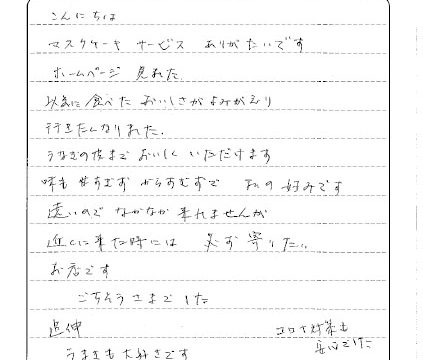 こんにちは
マスクケーキ サービス ありがたいです
ホームページ 見れた
以前に食べた おいしさがよみがえり
行きたくなりました.
うなぎの皮まで おいしく いただけます
味も 甘すぎず からすぎずで 私の 好みです
遠いので なかなか 来れませんが
近くに来た時には 必ず 寄りたい
お店です
ごちそうさまでした
追伸
コロナ対策も
安心でした
うまきも大好きです